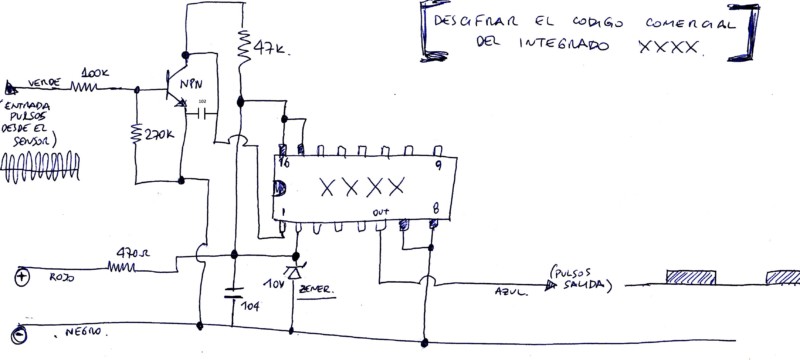 DESCIFRAR EL CODIGO COMERCIAL
DEL INTEGRADO XXXX.
47K.
100K
VERDE
NPN
103
ENTRADA
PULSOS
DESDE EL
SENSOR)
270K
16
9
XXXX
1
OUT
8
470Ω
+
ROJO
10V
ZENER.
104
(PULSOS
SALIDA)
AZUL.
-
. NEGRO.